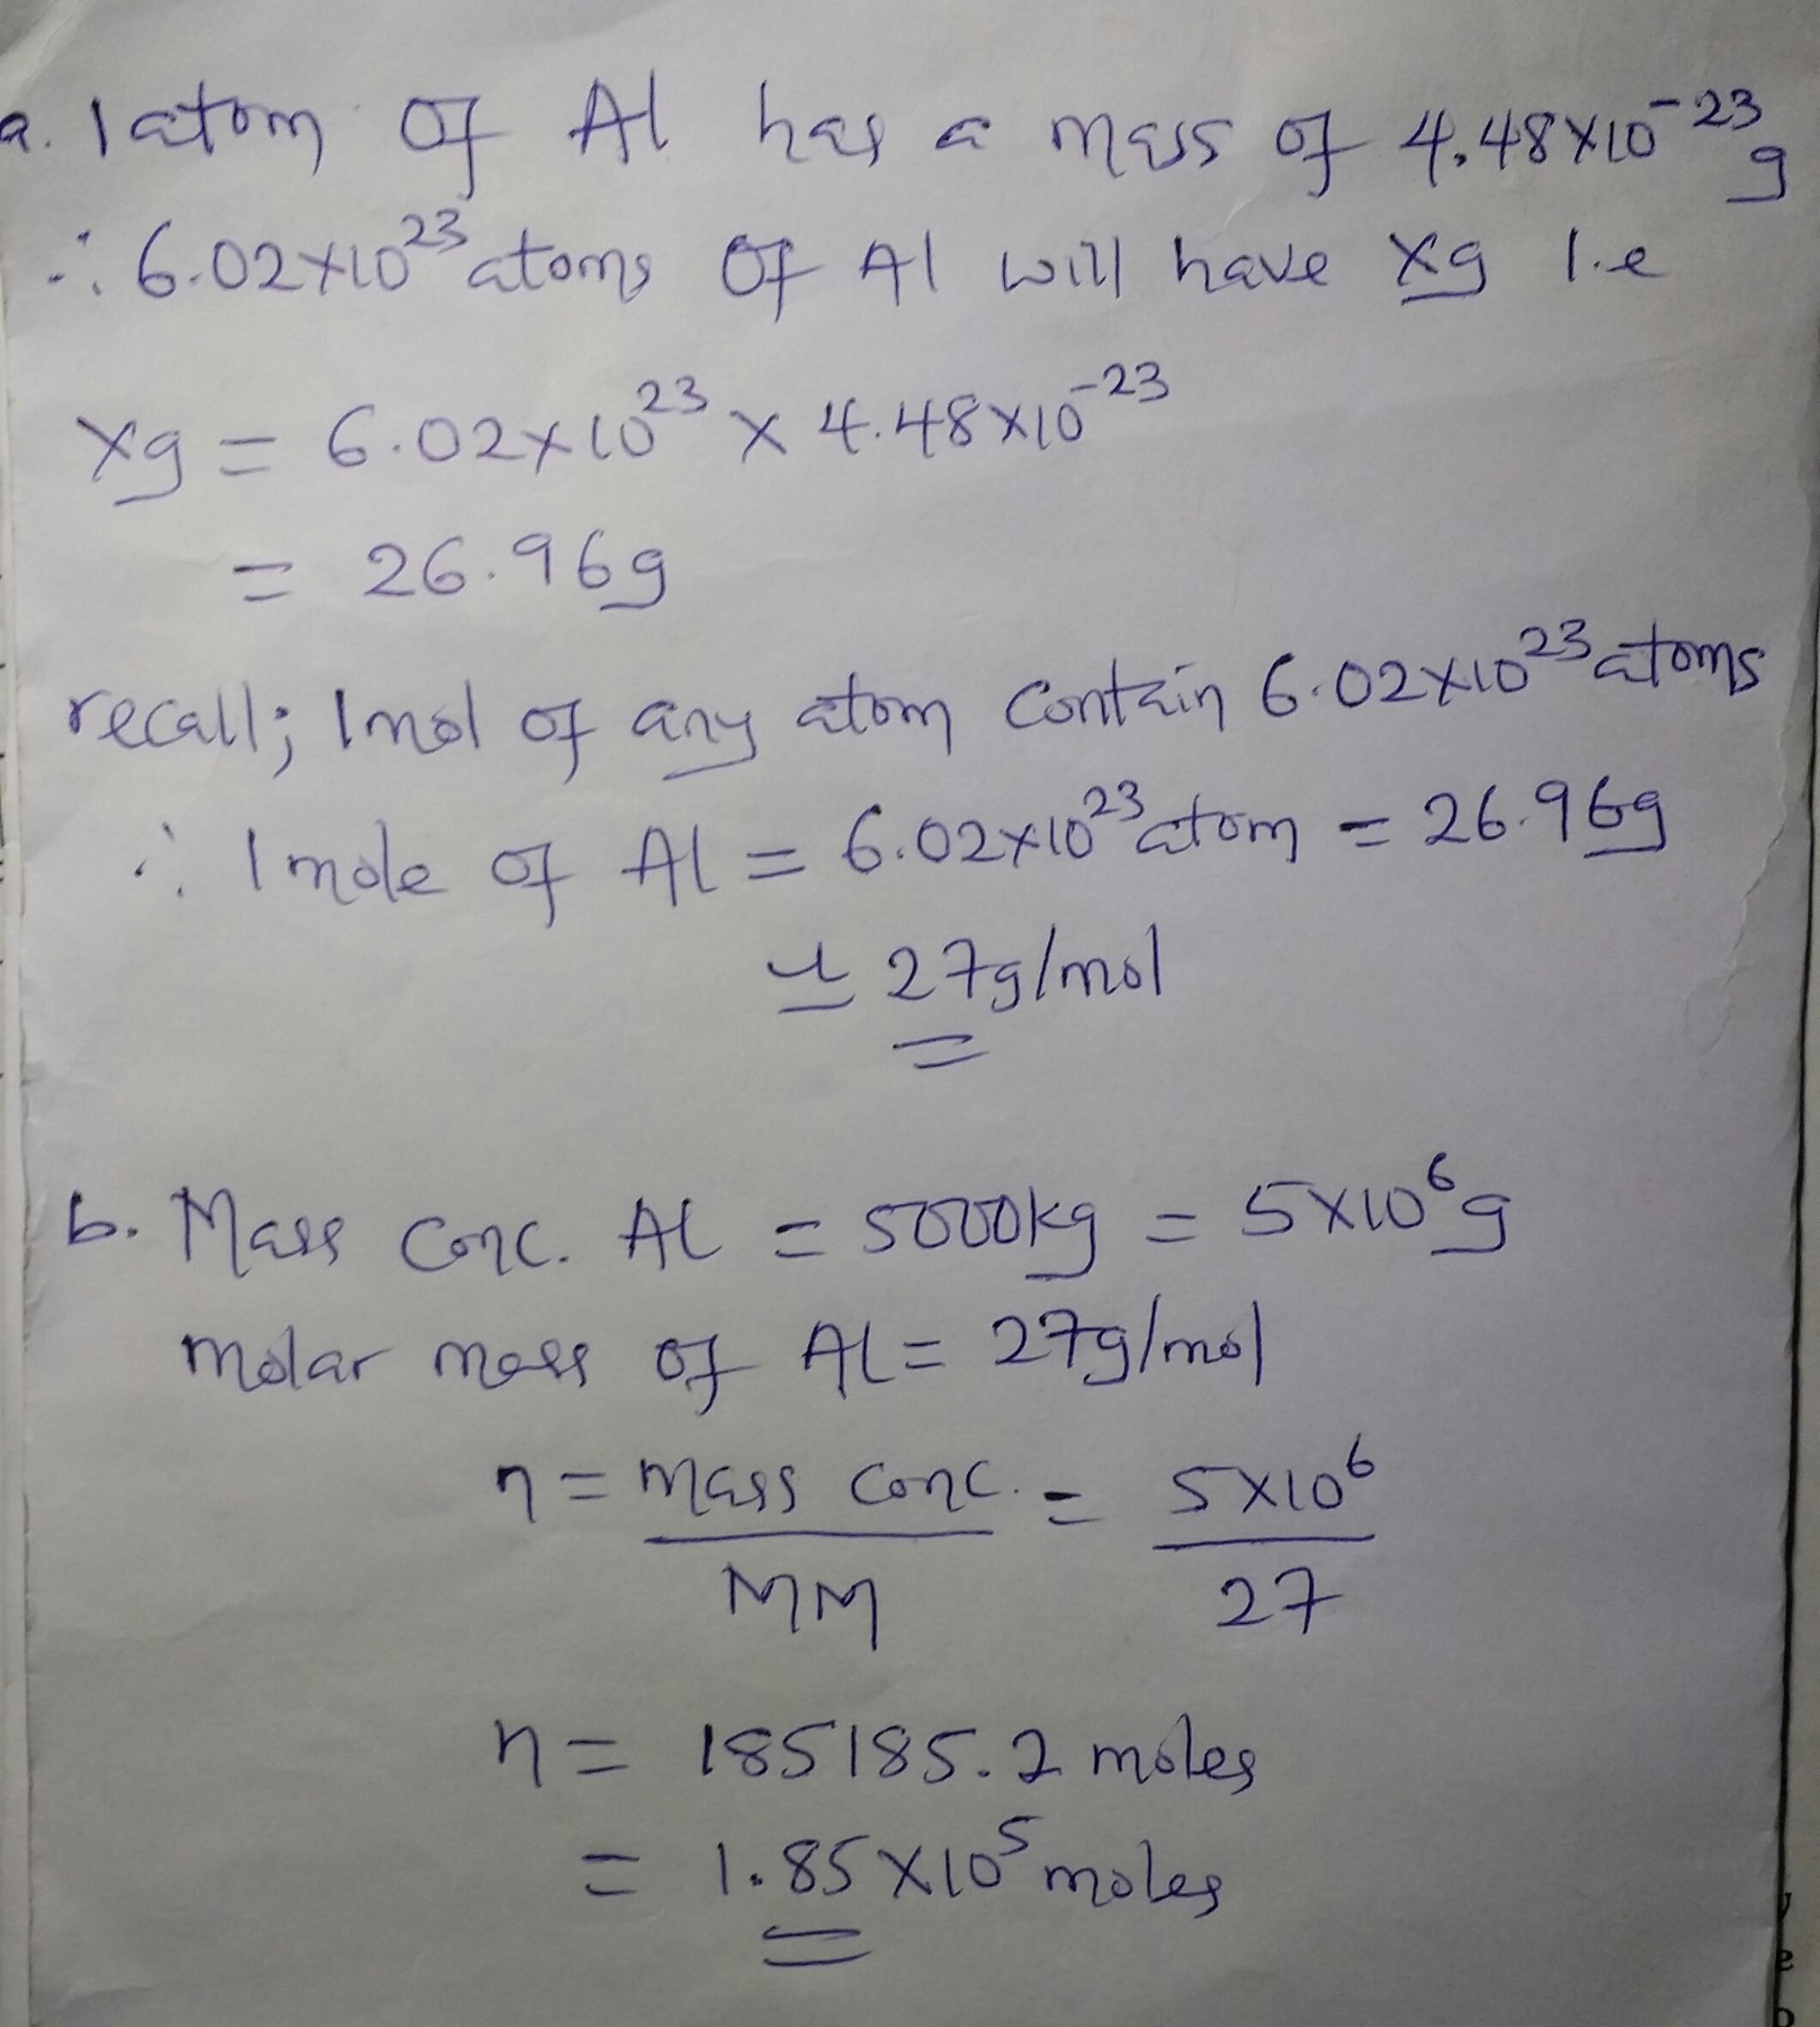 a. 1 atom of Al has a mass of 4.48×10⁻²³g
∴ 6.02×10²³ atoms of Al will have xg I.e
xg = 6.02×10²³ × 4.48×10⁻²³
= 26.96g
recall; 1mol of any atom contain 6.02×10²³ atoms
∴ 1mole of Al = 6.02×10²³ atom = 26.96g
≃ 27g/mol
b. Mass conc. Al = 5000kg = 5×10⁶g
molar mass of Al = 27g/mol
n = mass conc. / MM = 5×10⁶ / 27
n = 185185.2 moles
= 1.85×10⁵ moles